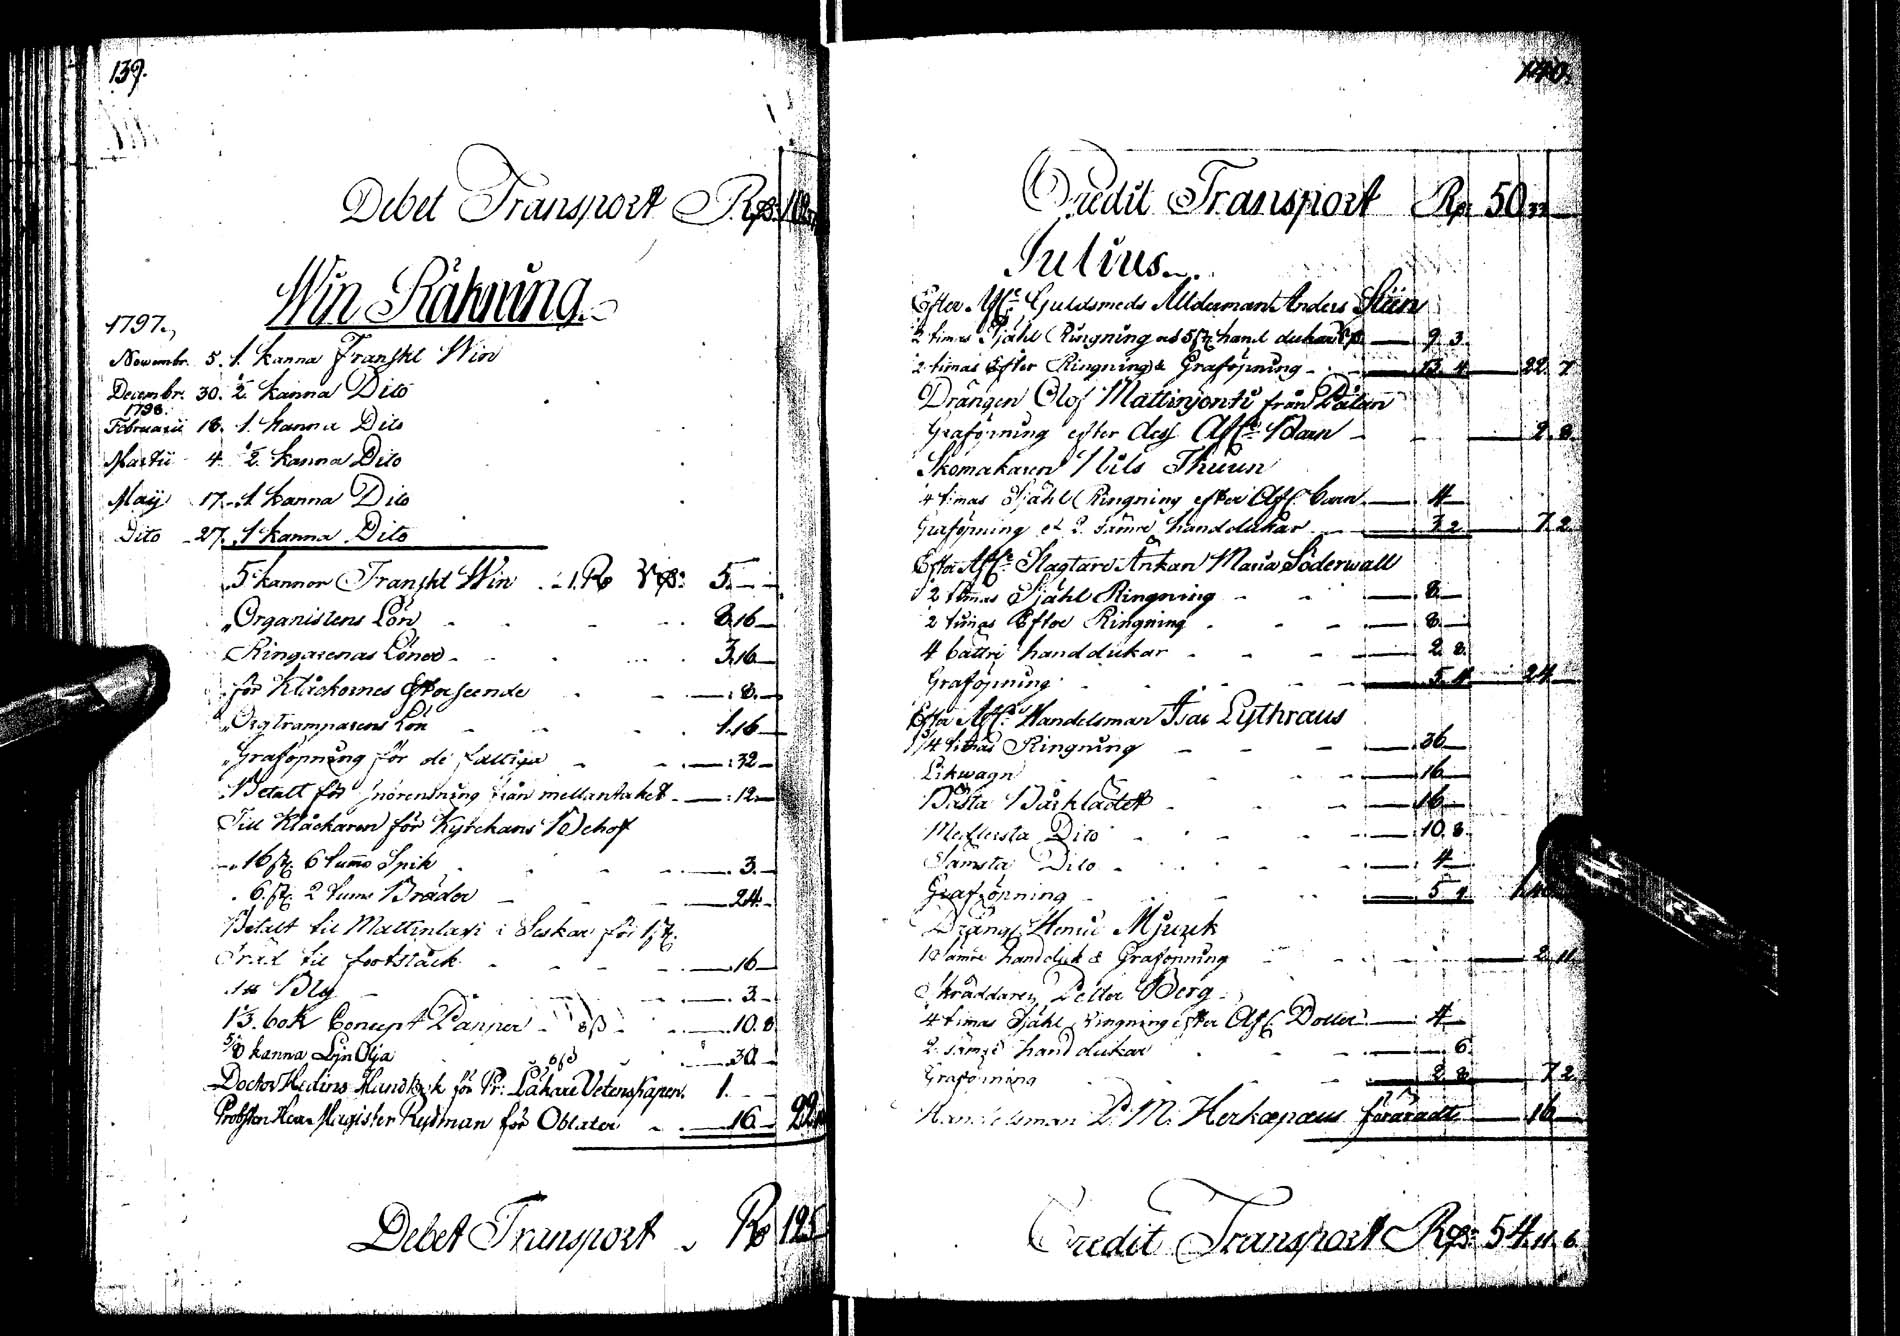 139.
Debet Transport Rg: 112
Win Räkning
1797.
Novembr. 5. 1. kanna Franskt Win
Decembr. 30. ½. kanna Dito
1798.
Februarii 18. 1. kanna Dito
Martii 4. ½. kanna Dito
Maij 17. 1 kanna Dito
Dito 27. 1 kanna Dito
5 kannor Franskt Win 5.
Organistens Lön 8.16
Ringarenas Löner 3.16
för Klåckornes Efterseende 8.
Orgtramparens Lön 1.16
Graföpning för de fattiga 32
Betalt för snörensning från mellantaket 12
Till Klåckaren för Kyrckans Behof
16 st. 6 tums Spik 3.
6. st. 2 tums Bräder 24.
Betalt til Mattinlasi i Seskar för 1 st.
Träd til fotstäck 16
Bly 3.
1⅓. bok Concept Papper 8ß 10.8
⅝ kanna Lin Olja 30
Doctor Hedins Handbok för Pr: Läkare Vetenskapen. 1.
Probsten Herr Magister Reidman för Oblater 16 22
Debet Transport Rg 125
140.
Credit Transport Rg: 50.33
Julius.
Efter Afl: Guldsmeds Ålderman Anders Stien
2 timas Själ Ringning 5 st. hand dukar 9.3.
2 timas Efter Ringning & Graföpning 13.4 22.7
Drängen Olof Mattinjonti från Palan
Graföpning efter dess Afl: Barn 2.8.
Skomakaren Nils Thuun
4 timas Själ Ringning efter Afl. barn 4
Graföpning et 2. sämre handdukar 3.2 7.2.
Efter Afl: Slagtare Änkan Maria Söderwall
2 timas Själ Ringning 8.
2 timas Efter Ringning 8.
4 battre handdukar 2.8.
Graföpning 5.4 24
Efter Afl: Handelsman Isac Lythraus
timas Ringning 36
Likwagn 16
Bästa Bårklädet 16
Medlersta Dito 10.8.
Sämsta Dito 4
Graföpning 5.4.
Dräng Henric Mjuuk
1 Sämre handduk & Graföpning 2.11.
Skräddaren Petter Berg
4 timas Själ Ringning efter Afl: Dotter 4
2. sämre hand dukar 6.
Graföpning 2.8. 7.2
Handelsman P. M. Herkæpæus förärade 16
Credit Transport Rg: 54.11.6